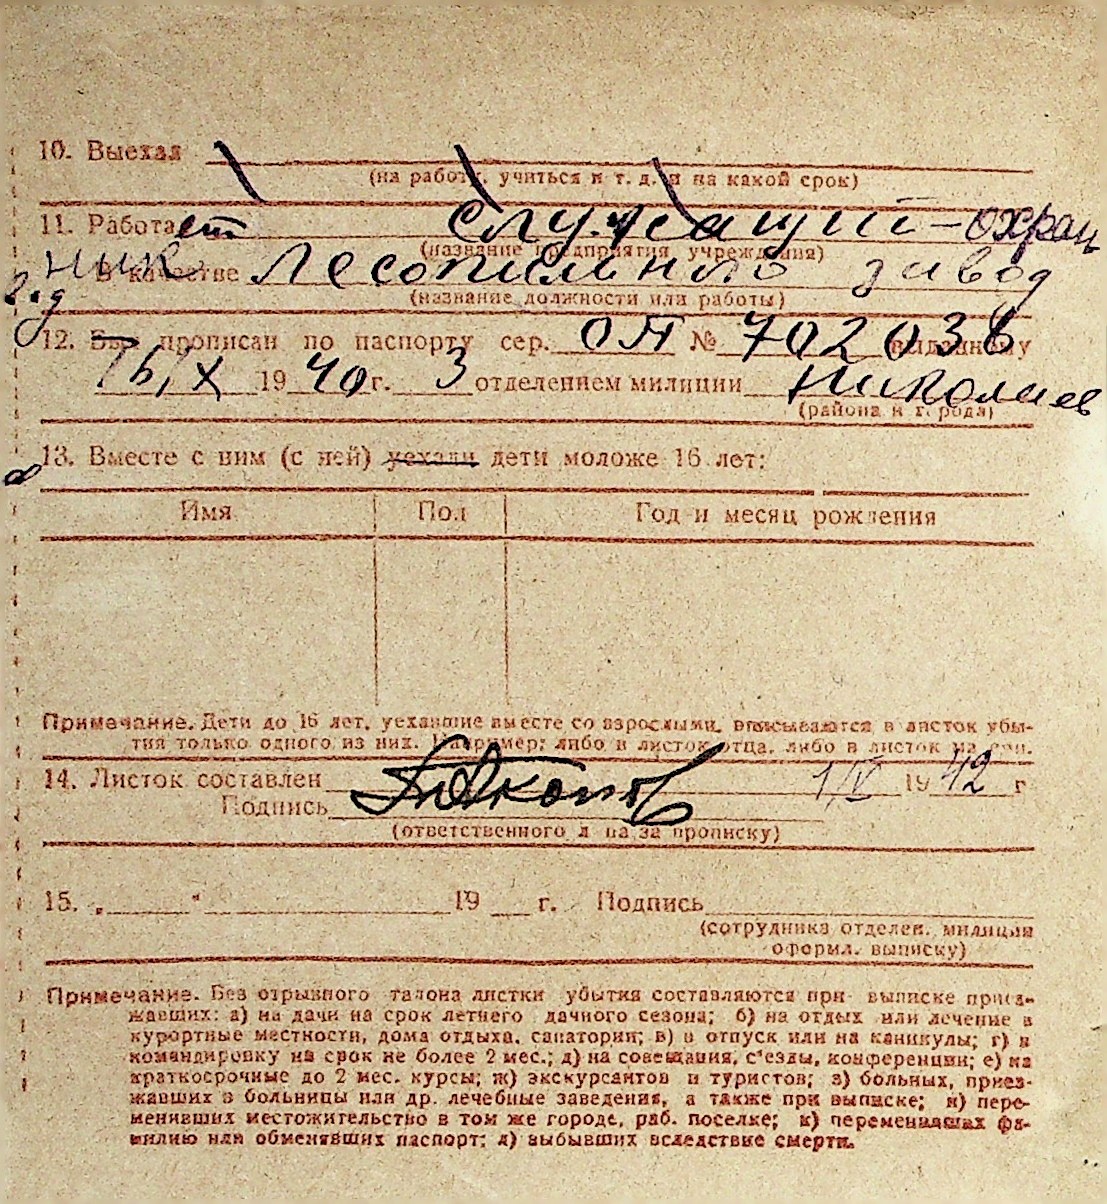 10. Выехал
(на работу, учиться и т. д. и на какой срок)
11. Работает служащий-охран
(название предприятия учреждения)
ник в качестве Лесопильного завод
(название должности или работы)
12. Был прописан по паспорту сер. ОЛ № 702036 выданному
16/IX 1940 г. 3 отделением милиции Николаев
(района и города)
13. Вместе с ним (с ней) уехали дети моложе 16 лет:
Имя Пол Год и месяц рождения
Примечание. Дети до 16 лет, уехавшие вместе со взрослыми, вписываются в листок убы-
тия только одного из них. Например: либо в листок отца, либо в листок
14. Листок составлен 1/V 1942 г
Подпись
(ответственного лица за прописку)
15. „ " 19 г. Подпись
(сотрудника отделен. милиции
оформл. выписку)
Примечание. Без отрывного талона листки убытия составляются при выписке приез-
жавших: а) на дачи на срок летнего дачного сезона; б) на отдых или лечение в
курортные местности, дома отдыха, санатории; в) в отпуск или на каникулы; г) в
командировку на срок не более 2 мес.; д) на совещания, с'езды, конференции; е) на
краткосрочные до 2 мес. курсы; ж) экскурсантов и туристов; з) больных, приез-
жавших в больницы или др. лечебные заведения, а также при выписке; и) пере-
менивших местожительство в том же городе, раб. поселке; к) переменивших фа-
милию или обменявших паспорт; л) выбывших вследствие смерти.